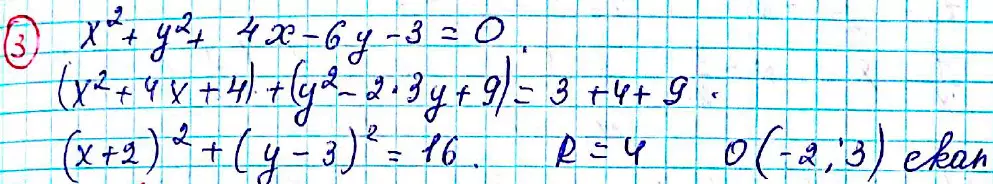 ③ x² + y² + 4x - 6y - 3 = 0.
(x² + 4x + 4) + (y² - 2·3y + 9) = 3 + 4 + 9.
(x+2)² + (y-3)² = 16. R = 4 O(-2; 3) екан